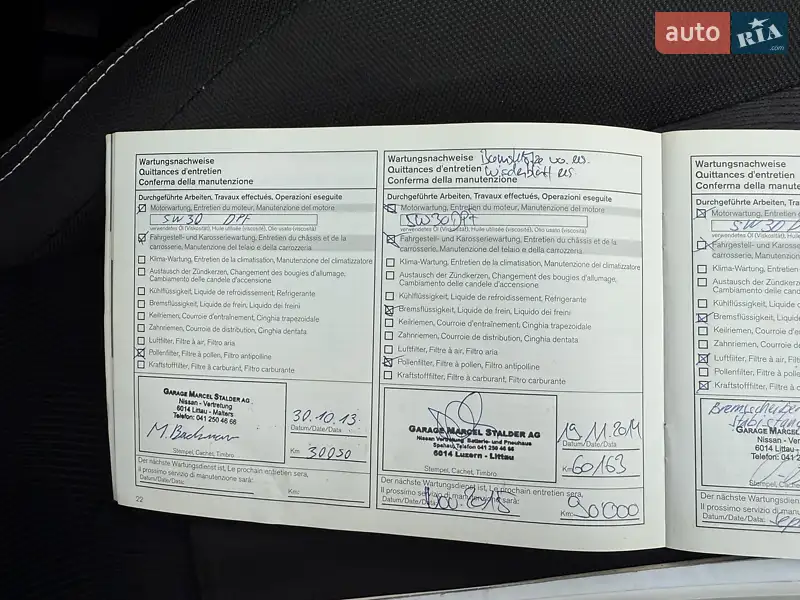 auto RIA .com
Wartungsnachweise
Quittances d'entretien
Conferma della manutenzione
Durchgeführte Arbeiten, Travaux effectués, Operazioni eseguite
Motorwartung, Entretien du moteur, Manutenzione del motore
5W30 DPF
verwendetes Öl (Viskosität), Huile utilisée (viscosité), Olio usato (viscosità)
Fahrgestell- und Karosseriewartung, Entretien du châssis et de la
carrosserie, Manutenzione del telaio e della carrozzeria
Klima-Wartung, Entretien de la climatisation, Manutenzione del climatizzatore
Austausch der Zündkerzen, Changement des bougies d'allumage,
Cambiamento delle candele d'accensione
Kühlflüssigkeit, Liquide de refroidissement, Refrigerante
Bremsflüssigkeit, Liquide de frein, Liquido dei freini
Keilriemen, Courroie d'entraînement, Cinghia trapezoidale
Zahnriemen, Courroie de distribution, Cinghia dentata
Luftfilter, Filtre à air, Filtro aria
Pollenfilter, Filtre à pollen, Filtro antipolline
Kraftstofffilter, Filtre à carburant, Filtro carburante
GARAGE MARCEL STALDER AG
Nissan - Vertretung
6014 Littau - Malters
Telefon: 041 250 46 66
30.10.13
Datum/Date/Data
Km: 30050
Stempel, Cachet, Timbro
Der nächste Wartungsdienst ist, Le prochain entretien sera,
Il prossimo servizio di manutenzione sarà:
Datum/Date/Data:
Km:
22
Wartungsnachweise
Quittances d'entretien
Conferma della manutenzione
Durchgeführte Arbeiten, Travaux effectués, Operazioni eseguite
Motorwartung, Entretien du moteur, Manutenzione del motore
5W30 DPF
verwendetes Öl (Viskosität), Huile utilisée (viscosité), Olio usato (viscosità)
Fahrgestell- und Karosseriewartung, Entretien du châssis et de la
carrosserie, Manutenzione del telaio e della carrozzeria
Klima-Wartung, Entretien de la climatisation, Manutenzione del climatizzatore
Austausch der Zündkerzen, Changement des bougies d'allumage,
Cambiamento delle candele d'accensione
Kühlflüssigkeit, Liquide de refroidissement, Refrigerante
Bremsflüssigkeit, Liquide de frein, Liquido dei freini
Keilriemen, Courroie d'entraînement, Cinghia trapezoidale
Zahnriemen, Courroie de distribution, Cinghia dentata
Luftfilter, Filtre à air, Filtro aria
Pollenfilter, Filtre à pollen, Filtro antipolline
Kraftstofffilter, Filtre à carburant, Filtro carburante
GARAGE MARCEL STALDER AG
Nissan Vertretung Batterie- und Pneuhaus
Telefon 041 250 46 66
6014 Luzern - Littau
19.11.2014
Datum/Date/Data
Km: 60163
Stempel, Cachet, Timbro
Der nächste Wartungsdienst ist, Le prochain entretien sera,
Il prossimo servizio di manutenzione sarà:
Datum/Date/Data: Nov. 2015
Km: 90'000
Wartungsnachweise
Quittances d'entretien
Conferma della manutenzione
Durchgeführte Arbeiten, Trav
Motorwartung, Entretien d
5W30 D
verwendetes Öl (Viskosität), Huile
Fahrgestell- und Karosse
carrosserie, Manutenzion
Klima-Wartung, Entretien
Austausch der Zündkerze
Cambiamento delle cand
Kühlflüssigkeit, Liquide d
Bremsflüssigkeit, Liquide
Keilriemen, Courroie d'en
Zahnriemen, Courroie de
Luftfilter, Filtre à air, Filtr
Pollenfilter, Filtre à poller
Kraftstofffilter, Filtre à ca
GARAGE MA
Nissan - V
6014 Litta
Telefon: 041
Stempel, Cachet,
Der nächste Wartungsdienst
Il prossimo servizio di manu
Datum/Date/Data: